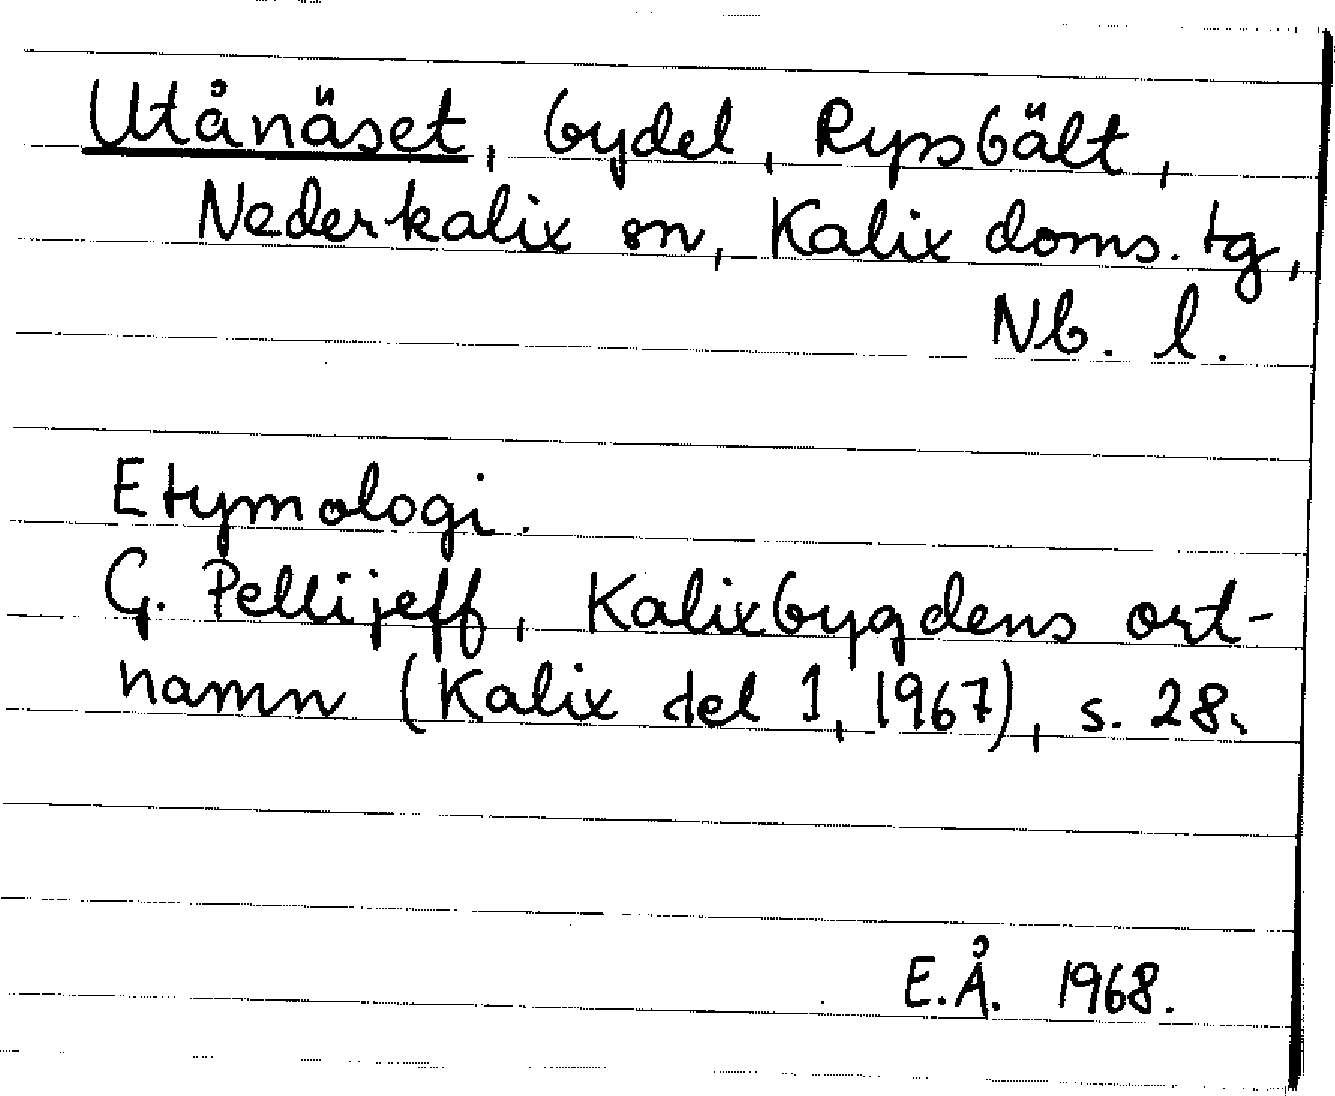 Utånäset, bydel, Rypsbält,
Nederkalix sn, Kalix doms. tg,
Nb. l.
Etymologi.
G. Pellijeff, Kalixbygdens ort-
namn (Kalix del 1, 1967), s. 28.
E.Å. 1968.